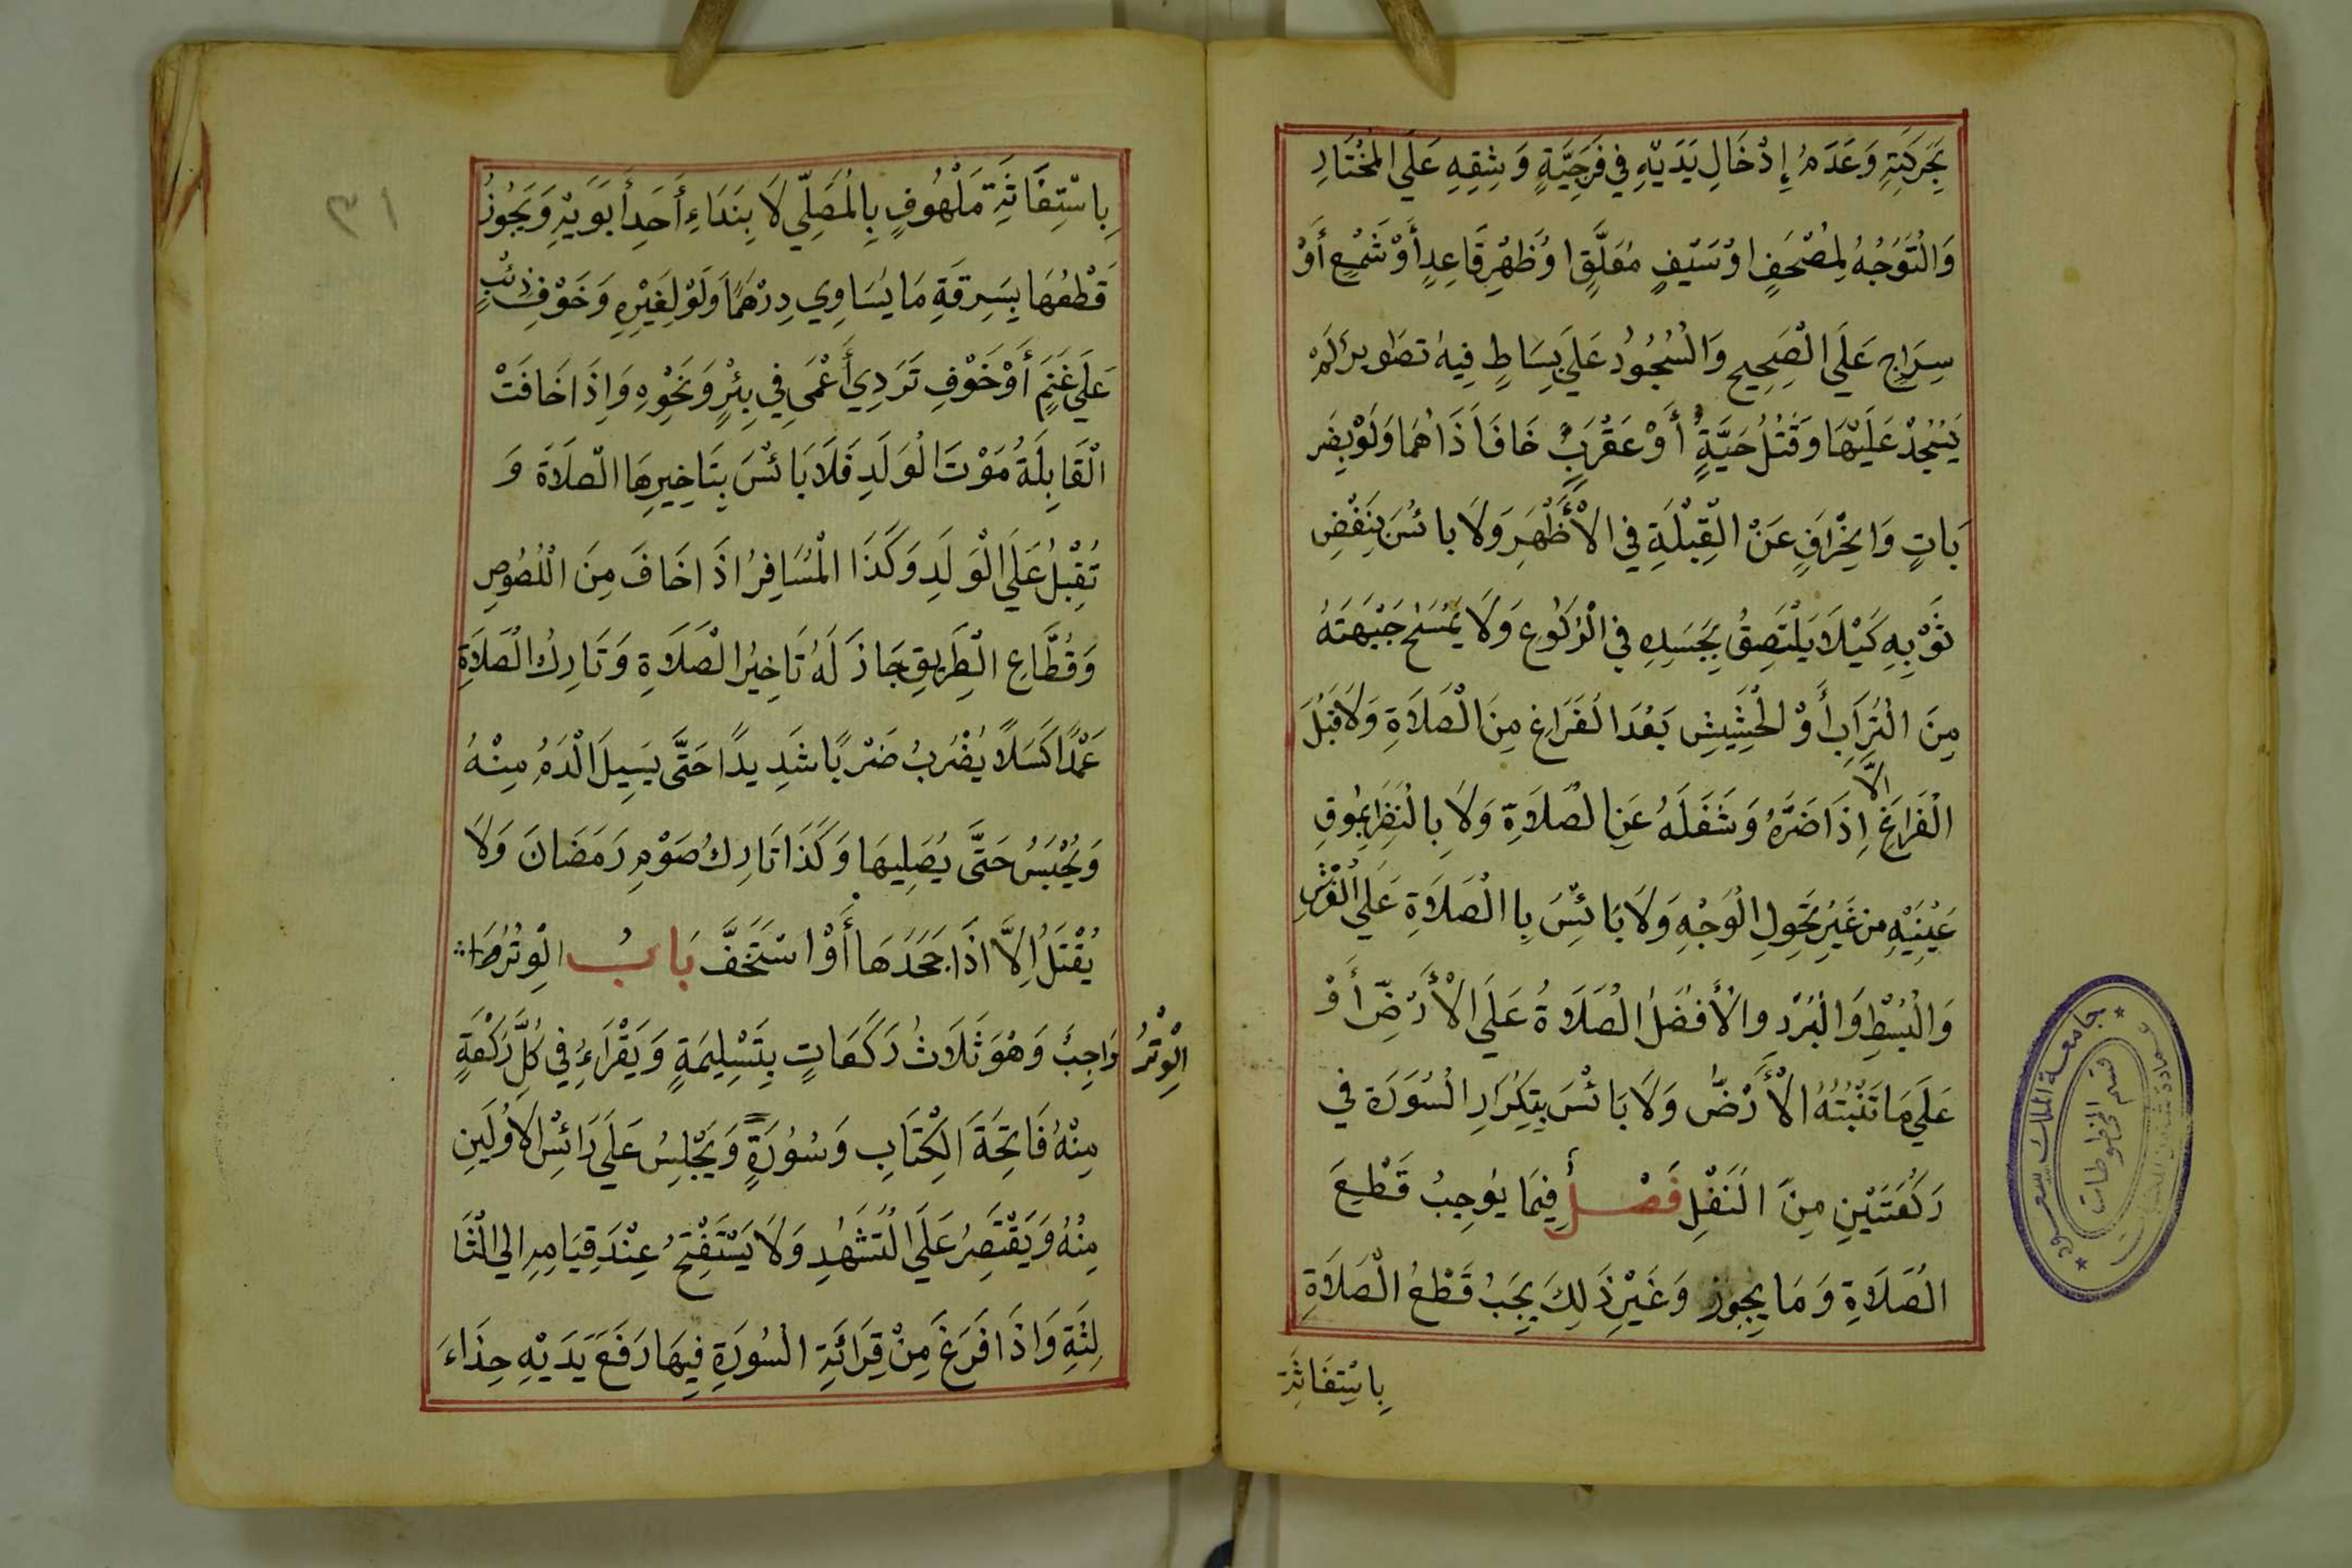 بِحَرَكَتِهِ وَعَدَمُ إِدْخَالِ يَدَيْهِ فِي فَرَجِيَّةٍ وَشِقِهِ عَلَي الْمُخْتَارِ
وَالْتَوَجُهُ لِمُصْحَفٍ اوْ سَيْفٍ مُعَلَّقٍ اوْ ظَهْرِ قَاعِدٍ أَوْ شَمْعٍ أَوْ
سِرَاجٍ عَلَي الْصَحِيحِ وَالْسُجُودُ عَلَي بِسَاطٍ فِيهُ تصَاوير لَمْ
يَسْجُدْ عَلَيْهَا وَقَتْلُ حَيَّةٍ أَوْ عَقْرَبٍ خَافَ اَذَاهُمَا وَلَوْ بِضَر
بَاتٍ وَانِحْرَافٍ عَنْ الْقِبْلَةِ فِي الْأَظْهَرِ وَلَا بائسَ بِنَفْضِ
ثَوْبِهِ كَيْلَا يَلْتَصِقُ بِجَسَدِهِ فِي الْرُكُوعِ وَلَا يَمْسَحُ جَبْهَتَهُ
مِنَ الْتُرَابِ أَوْ الْحَشِيشِ بَعْدَ الْفَرَاغِ مِنَ الْصَلَاةِ وَلَا قَبْلَ
الْفَرَاغِ الَّا اِذَا ضَرَّهُ وَشَغَلَهُ عَنِ الْصَلَاةِ وَلَا بِالْنَظَرِ بِمُوقِ
عَيْنَيْهِ من غَيْرِ تَحَوِلِ الْوَجْهِ وَلَا بَائسَ بِا الْصَلَاةِ عَلَي الْفُرُشِ
وَالْبُسْطِ وَالْبُرْد وَالْأَفْضَلُ الْصَلَاةُ عَلَي الْأَرْضِ أَوْ
عَلَي مَا تَنْبُتُهُ الْأَرْضُ وَلَا بَائْسَ بِتِكْرَارِ الْسُورَة فِي
رَكْعَتَيْنِ مِنَ الْنَفْلِ فَصْلٌ فِيمَا يُوجِبُ قَطْعَ
الْصَلَاةِ وَمَا يجِوز وَغَيْرِ ذَلِكَ يَجِبُ قَطْعُ الْصَلَاةِ
بِاسْتِغَاثَةِ
جامعة الملك سعود
قسم المخطوطات
٣١
بِاسْتِغَاثَةِ مَلْهُوفٍ بِالْمُصَلِّي لَا بِنَدَاءِ أَحَدِ أَبَوَيْهِ وَيَجُوزُ
قَطْعُهَا بِسَرِقَةِ مَا يُسَاوِي دِرْهَمًا وَلَوْ لِغَيْرِهِ وَخَوْفِ ذِئْبٍ
عَلَي غَنَمٍ أَوْ خَوْفِ تَرَدِي أَعْمَي فِي بِئْرٍ وَنَحْوِهِ وَاِذَا خَافَتْ
الْقَابِلَةُ مَوْتَ الْوَلَدِ فَلَا بَائسَ بِتَاخِيرِهَا الْصَلَاةَ وَ
تُقْبِلُ عَلَي الْوَلَدِ وَكَذَا الْمُسَافِرُ اذَا خَافَ مِنَ الْلُصُوصِ
وَقُطَّاعِ الْطَرِيقِ جَازَ لَهُ تَاخِيرُ الْصَلَاةِ وَتَارِكُ الْصَلَاةِ
عَمْدًا كَسَلًا يُضْرَبُ ضَرْبًا شَدِيدًا حَتَّى يَسِيلَ الْدَمُ مِنْهُ
وَيُحْبَسُ حَتَّى يُصَلِيهَا وَكَذَا تَارِكُ صَوْمِ رَمَضَانَ وَلَا
يُقْتَلُ اِلَّا اذَا جَحَدَهَا أَوْ اسْتَخَفَّ بَابُ الْوِتْرُ
الْوِتْرُ وَاجِبٌ وَهُوَ ثَلَاثُ رَكَعَاتٍ بِتَسْلِيمَةٍ وَيَقْرَاءُ فِي كُلِّ رَكْعَةٍ
مِنْهُ فَاتِحَةَ الْكِتَابِ وَسُورَةٍ وَيَجْلِسُ عَلَي رَائْسِ الْاُولَيينِ
مِنْهُ وَيَقْتَصِرُ عَلَي الْتَشَهُدِ وَلَا يَسْتَفْتِحُ عِنْدَ قِيَامِهِ الي الْثَا
لِثَةِ وَاذَا فَرَغَ مِنْ قِرَائَةِ الْسُورَةِ فِيهَا رَفَعَ يَدَيْهِ حِذَاءَ